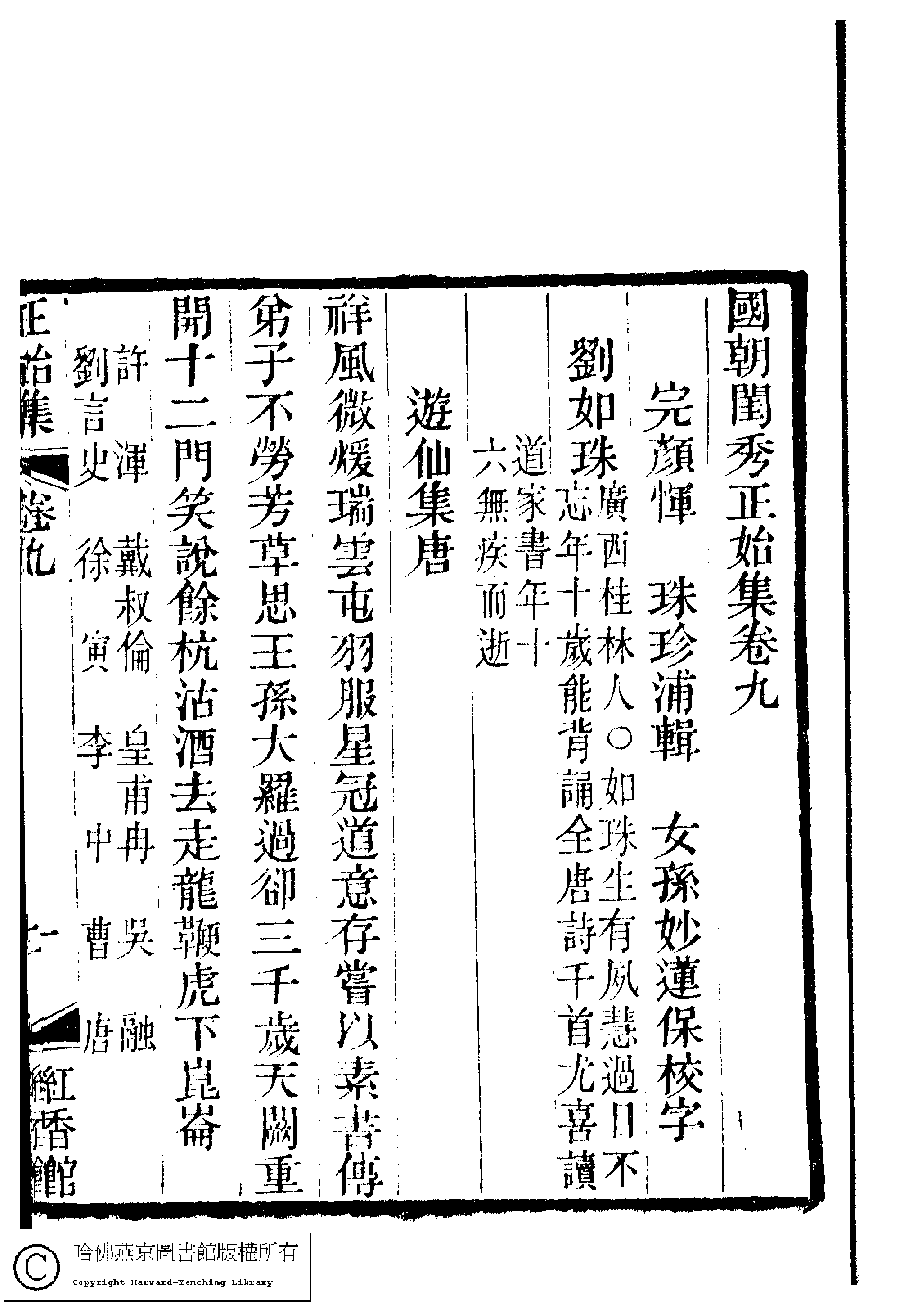 國朝閨秀正始集卷九
完顏惲　珠珍浦輯　女孫妙蓮保校字
劉如珠
廣西桂林人○如珠生有夙慧過目不
忘年十歲能背誦全唐詩千首尤喜讀
道家書年十
六無疾而逝
遊仙集唐
祥風微煖瑞雲屯羽服星冠道意存嘗以素書傳
弟子不勞芳草思王孫大羅過卻三千歲天闕重
開十二門笑說餘杭沽酒去走龍鞭虎下崑崙
許　渾　戴叔倫　皇甫冉　吳　融
劉言史　徐　寅　李　中　曹　唐
正始集　卷九　一　紅香館
哈佛燕京圖書館版權所有
Copyright Harvard-Yenching Library